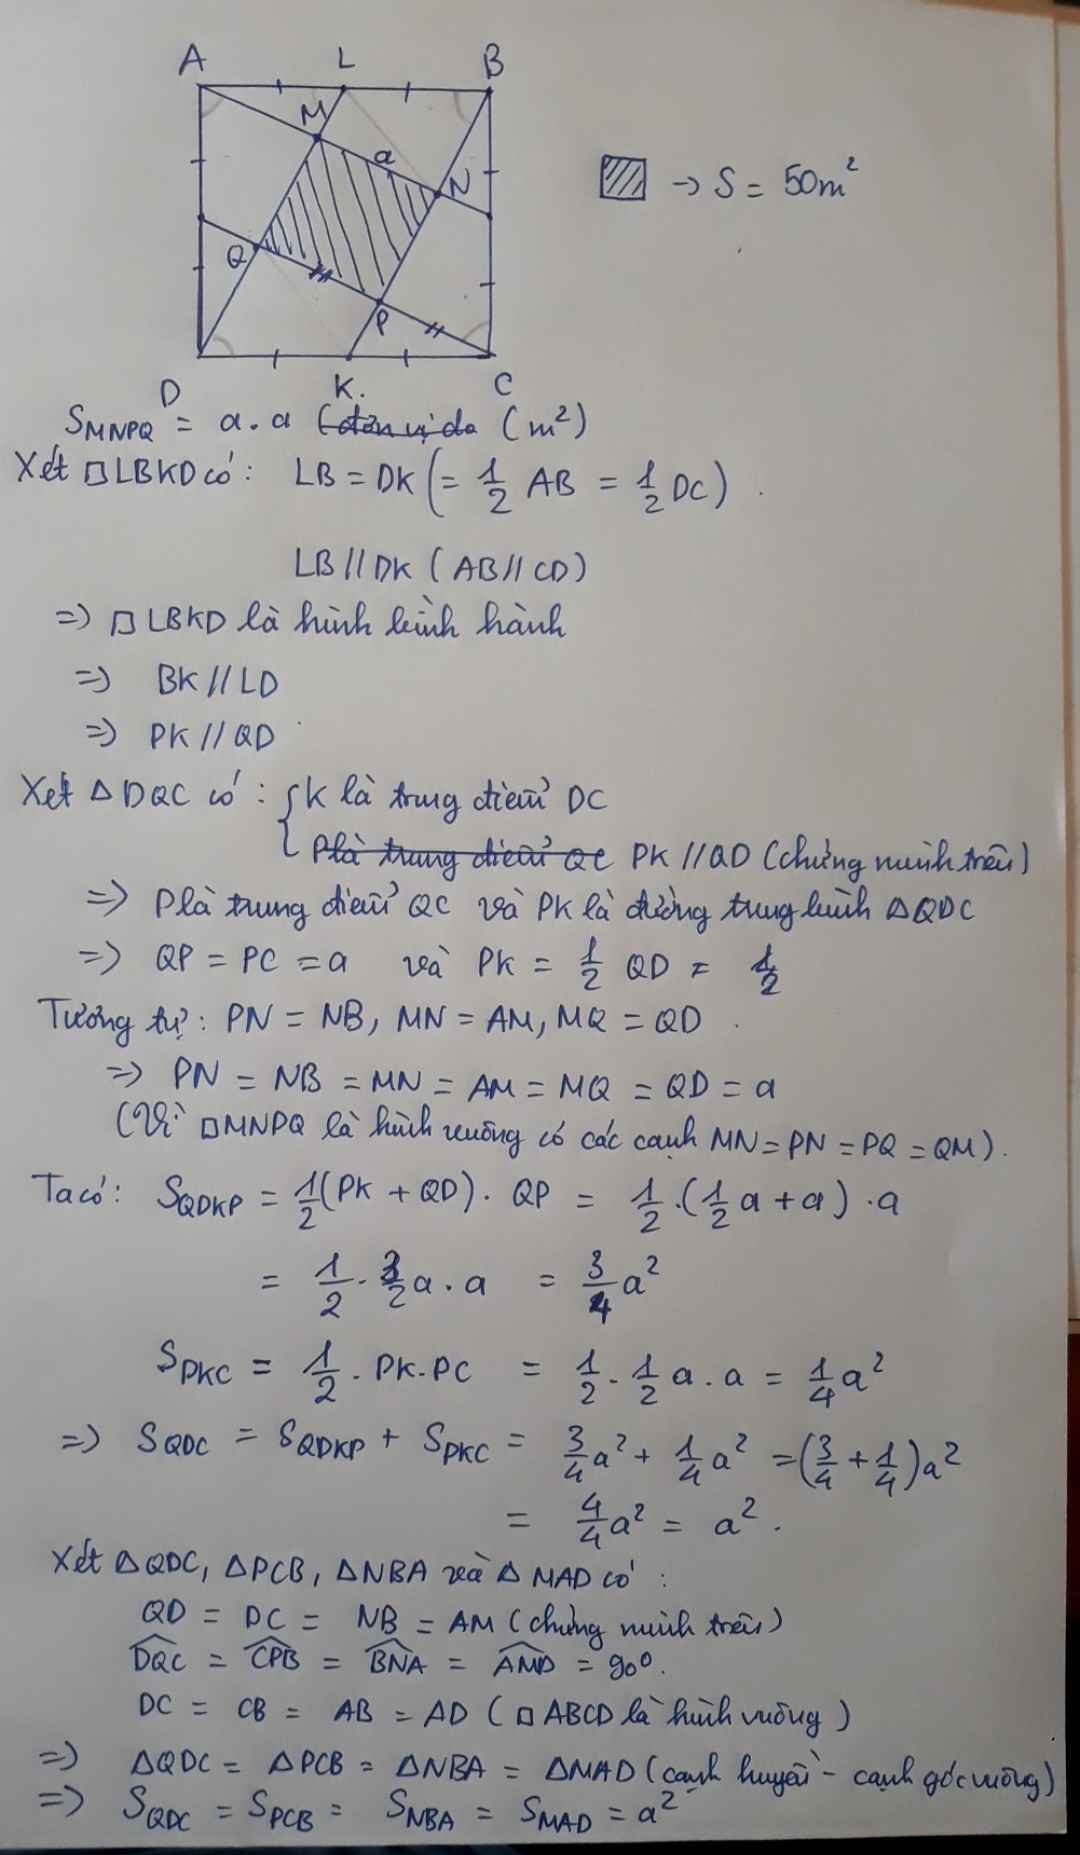 A L B
M a N
→ S = 50m²
Q P
D K. C
S_MNPQ = a.a (đơn vị đo (m²)
Xét □LBKD có: LB = DK (= 1/2 AB = 1/2 DC).
LB // DK (AB // CD)
=> □LBKD là hình bình hành
=> BK // LD
=> PK // QD
Xét △DQC có: { K là trung điểm DC
P là trung điểm QC PK // QD (chứng minh trên)
=> P là trung điểm QC và PK là đường trung bình △QDC
=> QP = PC = a và PK = 1/2 QD = 1/2
Tương tự: PN = NB, MN = AM, MQ = QD.
=> PN = NB = MN = AM = MQ = QD = a
(Vì □MNPQ là hình vuông có các cạnh MN = PN = PQ = QM).
Ta có: S_QDKP = 1/2 (PK + QD). QP = 1/2 .(1/2 a + a) .a
= 1/2 . 3/2 a . a = 3/4 a²
S_PKC = 1/2 . PK.PC = 1/2 . 1/2 a . a = 1/4 a²
=> S_QDC = S_QDKP + S_PKC = 3/4 a² + 1/4 a² = (3/4 + 1/4) a²
= 4/4 a² = a².
Xét △QDC, △PCB, △NBA và △MAD có:
QD = DC = NB = AM (chứng minh trên)
DQC = CPB = BNA = AMD = 90°.
DC = CB = AB = AD (□ABCD là hình vuông)
=> △QDC = △PCB = △NBA = △MAD (cạnh huyền - cạnh góc vuông)
=> S_QDC = S_PCB = S_NBA = S_MAD = a²